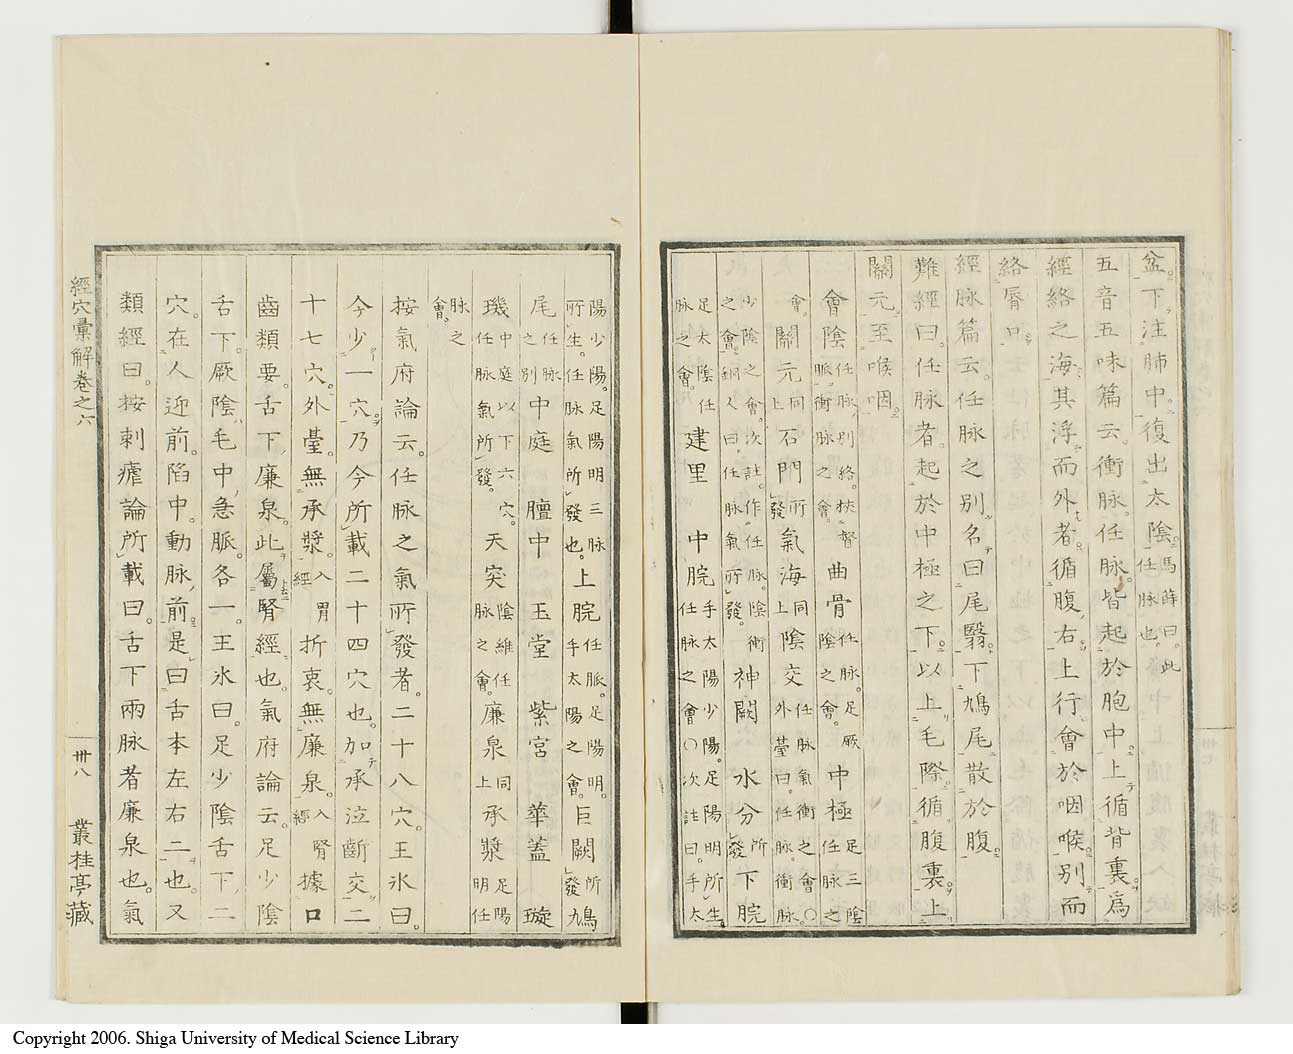 盆。下注肺中。復出太陰。馬蒔曰。此任脉也。
五音五味篇云。衝脉。任脉。皆起於胞中。上循背裏。爲
經絡之海。其浮而外者。循腹。右上行會於咽喉。別而
絡脣口。
經脉篇云。任脉之別。名曰尾翳。下鳩尾。散於腹。
難經曰。任脉者。起於中極之下。以上毛際。循腹裏。上
關元。至喉咽。
會陰任脉。別絡。挾督脈。衝脉之會。曲骨任脉。足厥陰之會。中極足三陰任脉之
會。關元同上石門所發氣海同上陰交任脉氣衝之會〇外臺曰。任脉。衝脉。
少陰之會。次註。作任脉。陰衝之會。銅人曰。任脉氣所發。神闕 水分所發。下脘
足太陰任脉之會。建里 中脘手太陽少陽。足陽明所生。任脉之會〇次註曰。手太
陽少陽。足陽明三脉所生。任脉氣所發也。上脘任脈。足陽明。手太陽之會。巨闕所發。鳩
尾任脉之別中庭 膻中 玉堂 紫宮 華蓋 璇
璣中庭以下六穴。任脉氣所發。天突陰維任脉之會。廉泉同上承漿足陽明任
脉之會。
按氣府論云。任脉之氣所發者。二十八穴。王氷曰。
今少一穴。乃今所載二十四穴也。加承泣齗交二
十七穴。外臺。無承漿。入胃經折衷。無廉泉。入腎經據口
齒類要。舌下。廉泉。此屬腎經也。氣府論云。足少陰
舌下。厥陰。毛中。急脈。各一。王氷曰。足少陰舌下。二
穴。在人迎前。陷中。動脉。前。是曰舌本左右二也。又
類經曰。按刺瘧論所載曰。舌下兩脉者廉泉也。氣
經穴彙解卷之六
卅八
叢桂亭藏
Copyright 2006. Shiga University of Medical Science Library